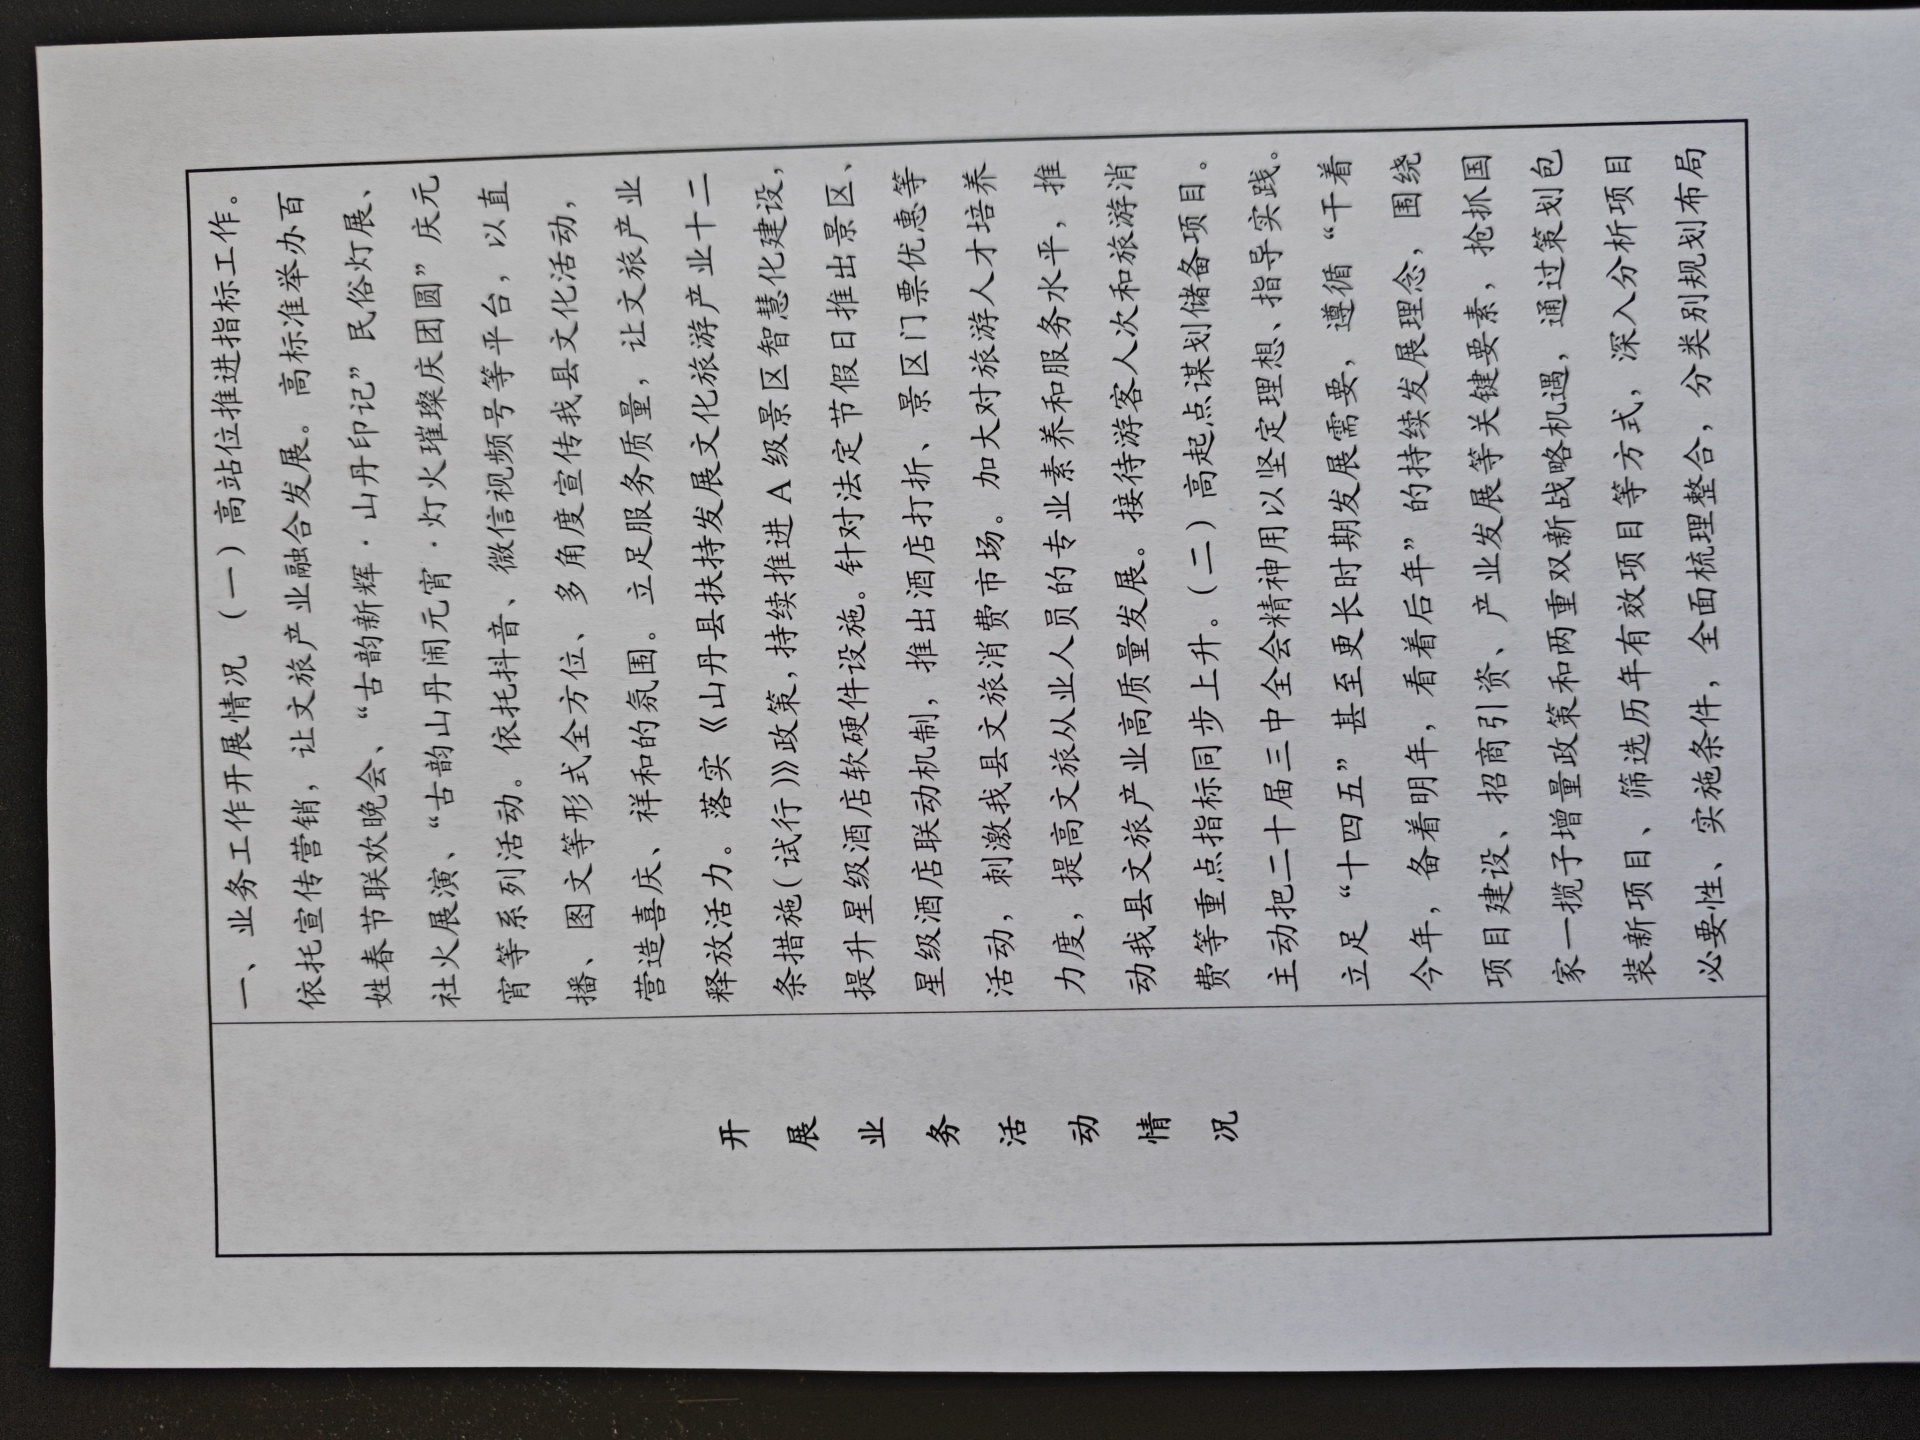 开展业务活动情况
一、业务工作开展情况 （一）高站位推进指标工作。
依托宣传营销，让文旅产业融合发展。高标准举办百
姓春节联欢晚会、“古韵新辉·山丹印记”民俗灯展、
社火展演、“古韵山丹闹元宵·灯火璀璨庆团圆”庆元
宵等系列活动。依托抖音、微信视频号等平台，以直
播、图文等形式全方位、多角度宣传我县文化活动，
营造喜庆、祥和的氛围。立足服务质量，让文旅产业
释放活力。落实《山丹县扶持发展文化旅游产业十二
条措施（试行）》政策，持续推进A级景区智慧化建设，
提升星级酒店软硬件设施。针对法定节假日推出景区、
星级酒店联动机制，推出酒店打折、景区门票优惠等
活动，刺激我县文旅消费市场。加大对旅游人才培养
力度，提高文旅从业人员的专业素养和服务水平，推
动我县文旅产业高质量发展。接待游客人次和旅游消
费等重点指标同步上升。（二）高起点谋划储备项目。
主动把二十届三中全会精神用以坚定理想、指导实践。
立足“十四五”甚至更长时期发展需要，遵循“干着
今年，备着明年，看着后年”的持续发展理念，围绕
项目建设、招商引资、产业发展等关键要素，抢抓国
家一揽子增量政策和两重双新战略机遇，通过策划包
装新项目、筛选历年有效项目等方式，深入分析项目
必要性、实施条件，全面梳理整合，分类别规划布局